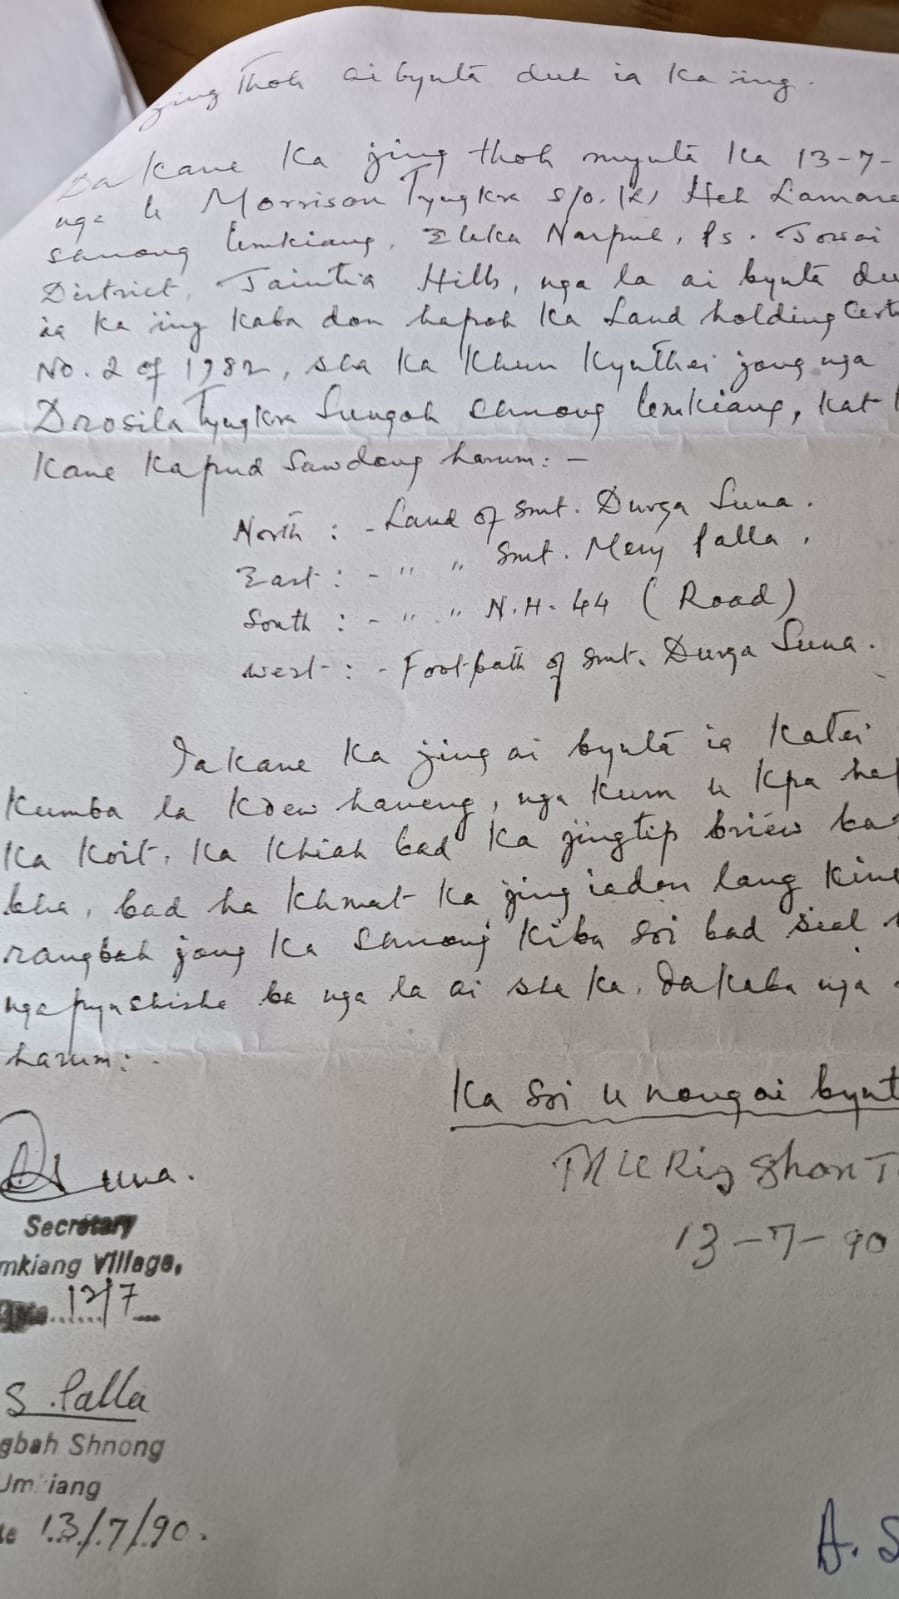 jing Thoh ai bynta duh ia Ka iing.
Da Kane Ka jing thoh mynta Ka 13-7-
nga u Morrison Tyngkra s/o. (L) Heh Lamare
shnong Umkiang, Elaka Narpuh, Ps. Jowai
District, Jaintia Hills, nga la ai bynta du
ia Ka iing Kaba don hapoh Ka Land holding Cert
No. 2 of 1982, sha Ka Khun Kynthei jong nga
Drosila Tyngkra Sungoh Shnong Umkiang, Kat
Kane Kapud Sawdong harum: -
North : - Land of Smt. Durga Suna.
East : - " " Smt. Mery Palla.
South : - " " N.H. 44 (Road)
West : - Footpath of Smt. Durga Suna.
Ia Kane Ka jing ai bynta ia Katei
Kumba la Kdew haneng, nga Kum u Kpa ha
Ka Koit, Ka Khiah bad Ka jingtip briew ba
bha, bad ha Khmat Ka jing iadon lang Kine
rangbah jong Ka Shnong Kiba soi bad sial
nga pynshisha ba nga la ai sha Ka. Da Kaba nga
harum: -
Ka Soi u nongai bynt
Suna.
Secretary
mkiang Village,
12/7
13-7-90
S. Palla
gbah Shnong
Um iang
te 13/7/90.
A. S